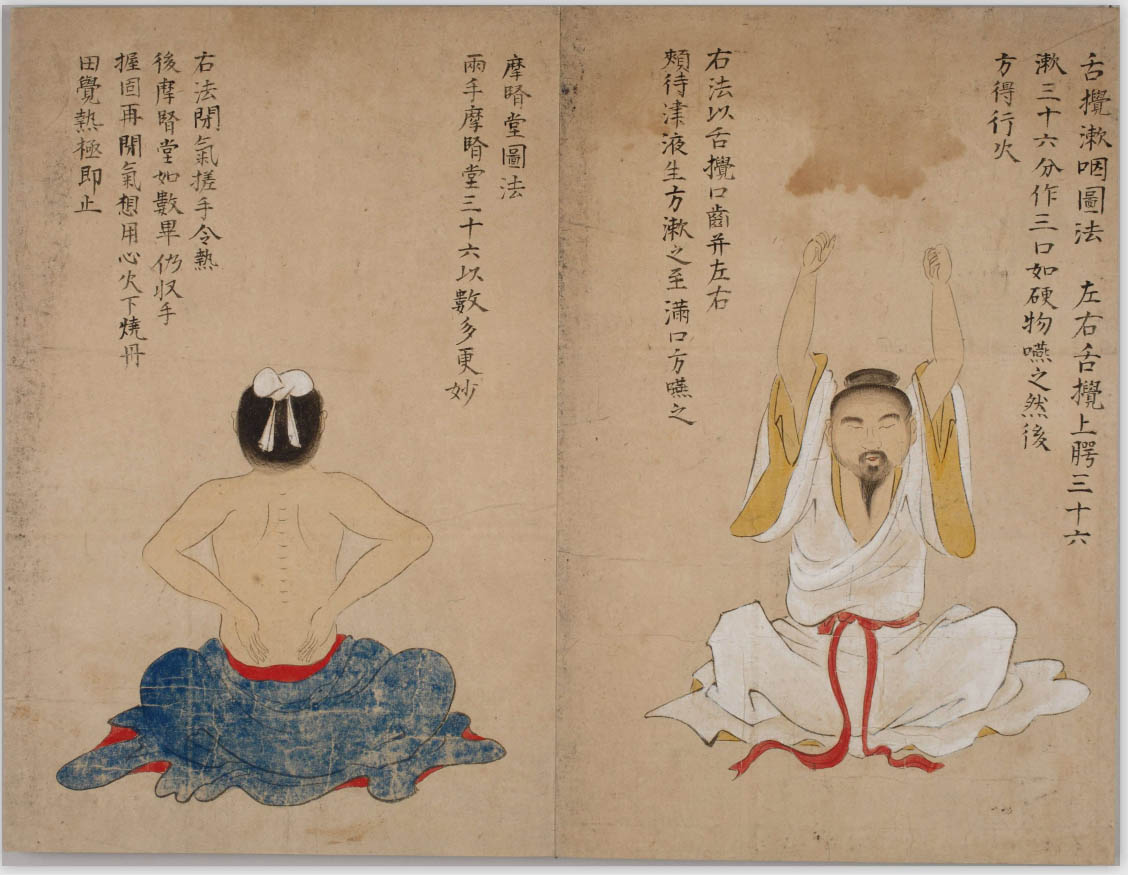 舌攪漱咽圖法　左右舌攪上腭三十六
漱三十六分作三口如硬物嚥之然後
方得行火
右法以舌攪口齒并左右
頰待津液生方漱之至滿口方嚥之
摩腎堂圖法
兩手摩腎堂三十六以數多更妙
右法閉氣搓手令熱
後摩腎堂如數畢仍収手
握固再閉氣想用心火下燒丹
田覺熱極即止